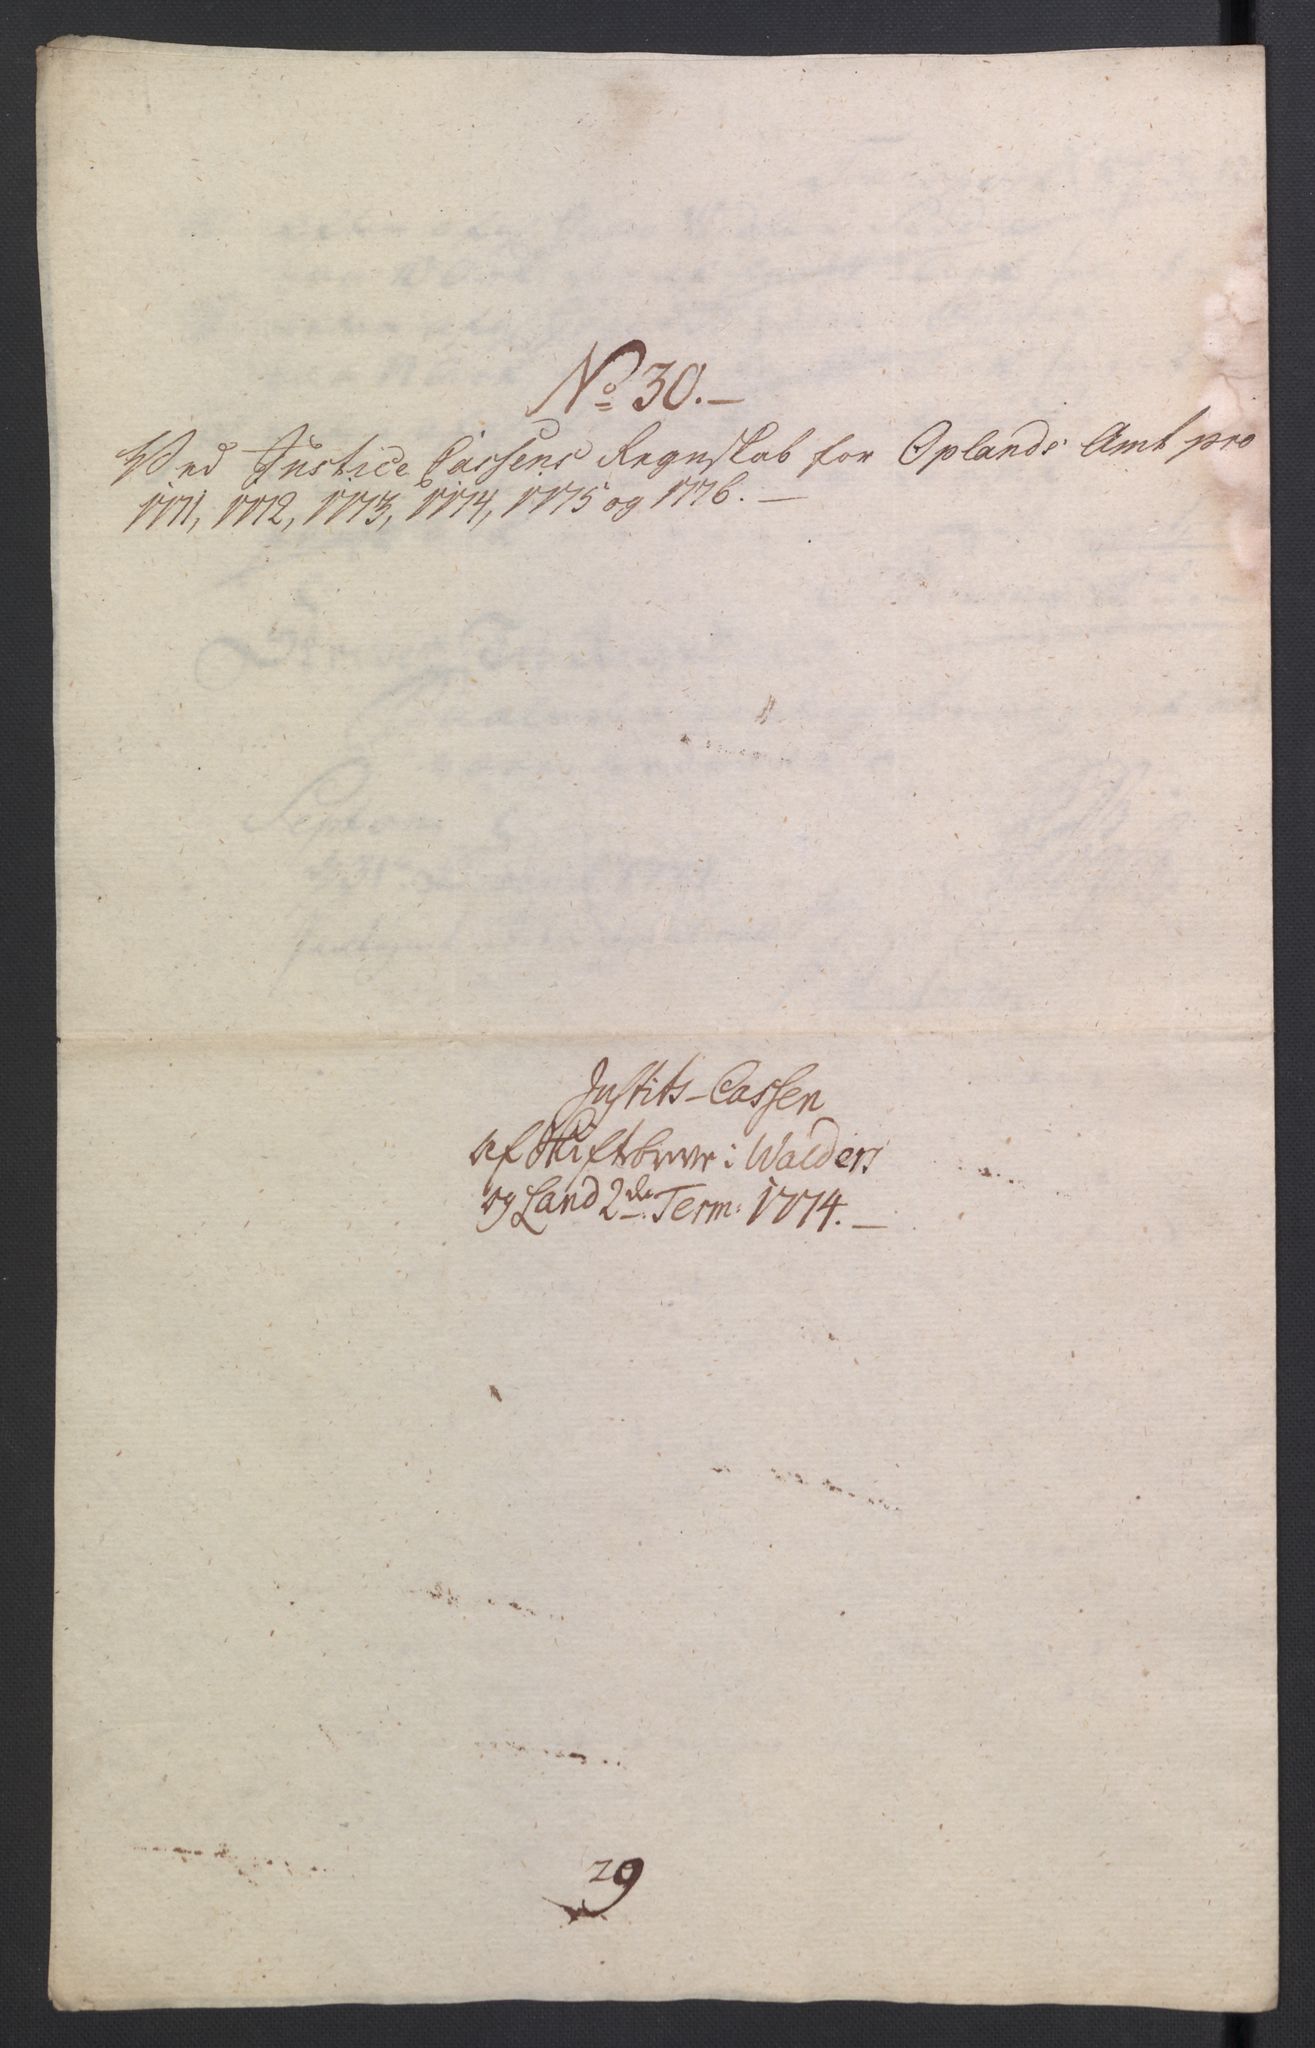 No 30.
Ved Justice Cassens Regnskab for Oplands Amt pro
1771, 1772, 1773, 1774, 1775 og 1776.
Justits-Cassen
af Skiftebreve i Walders
og Land 2de Term: 1774.
29